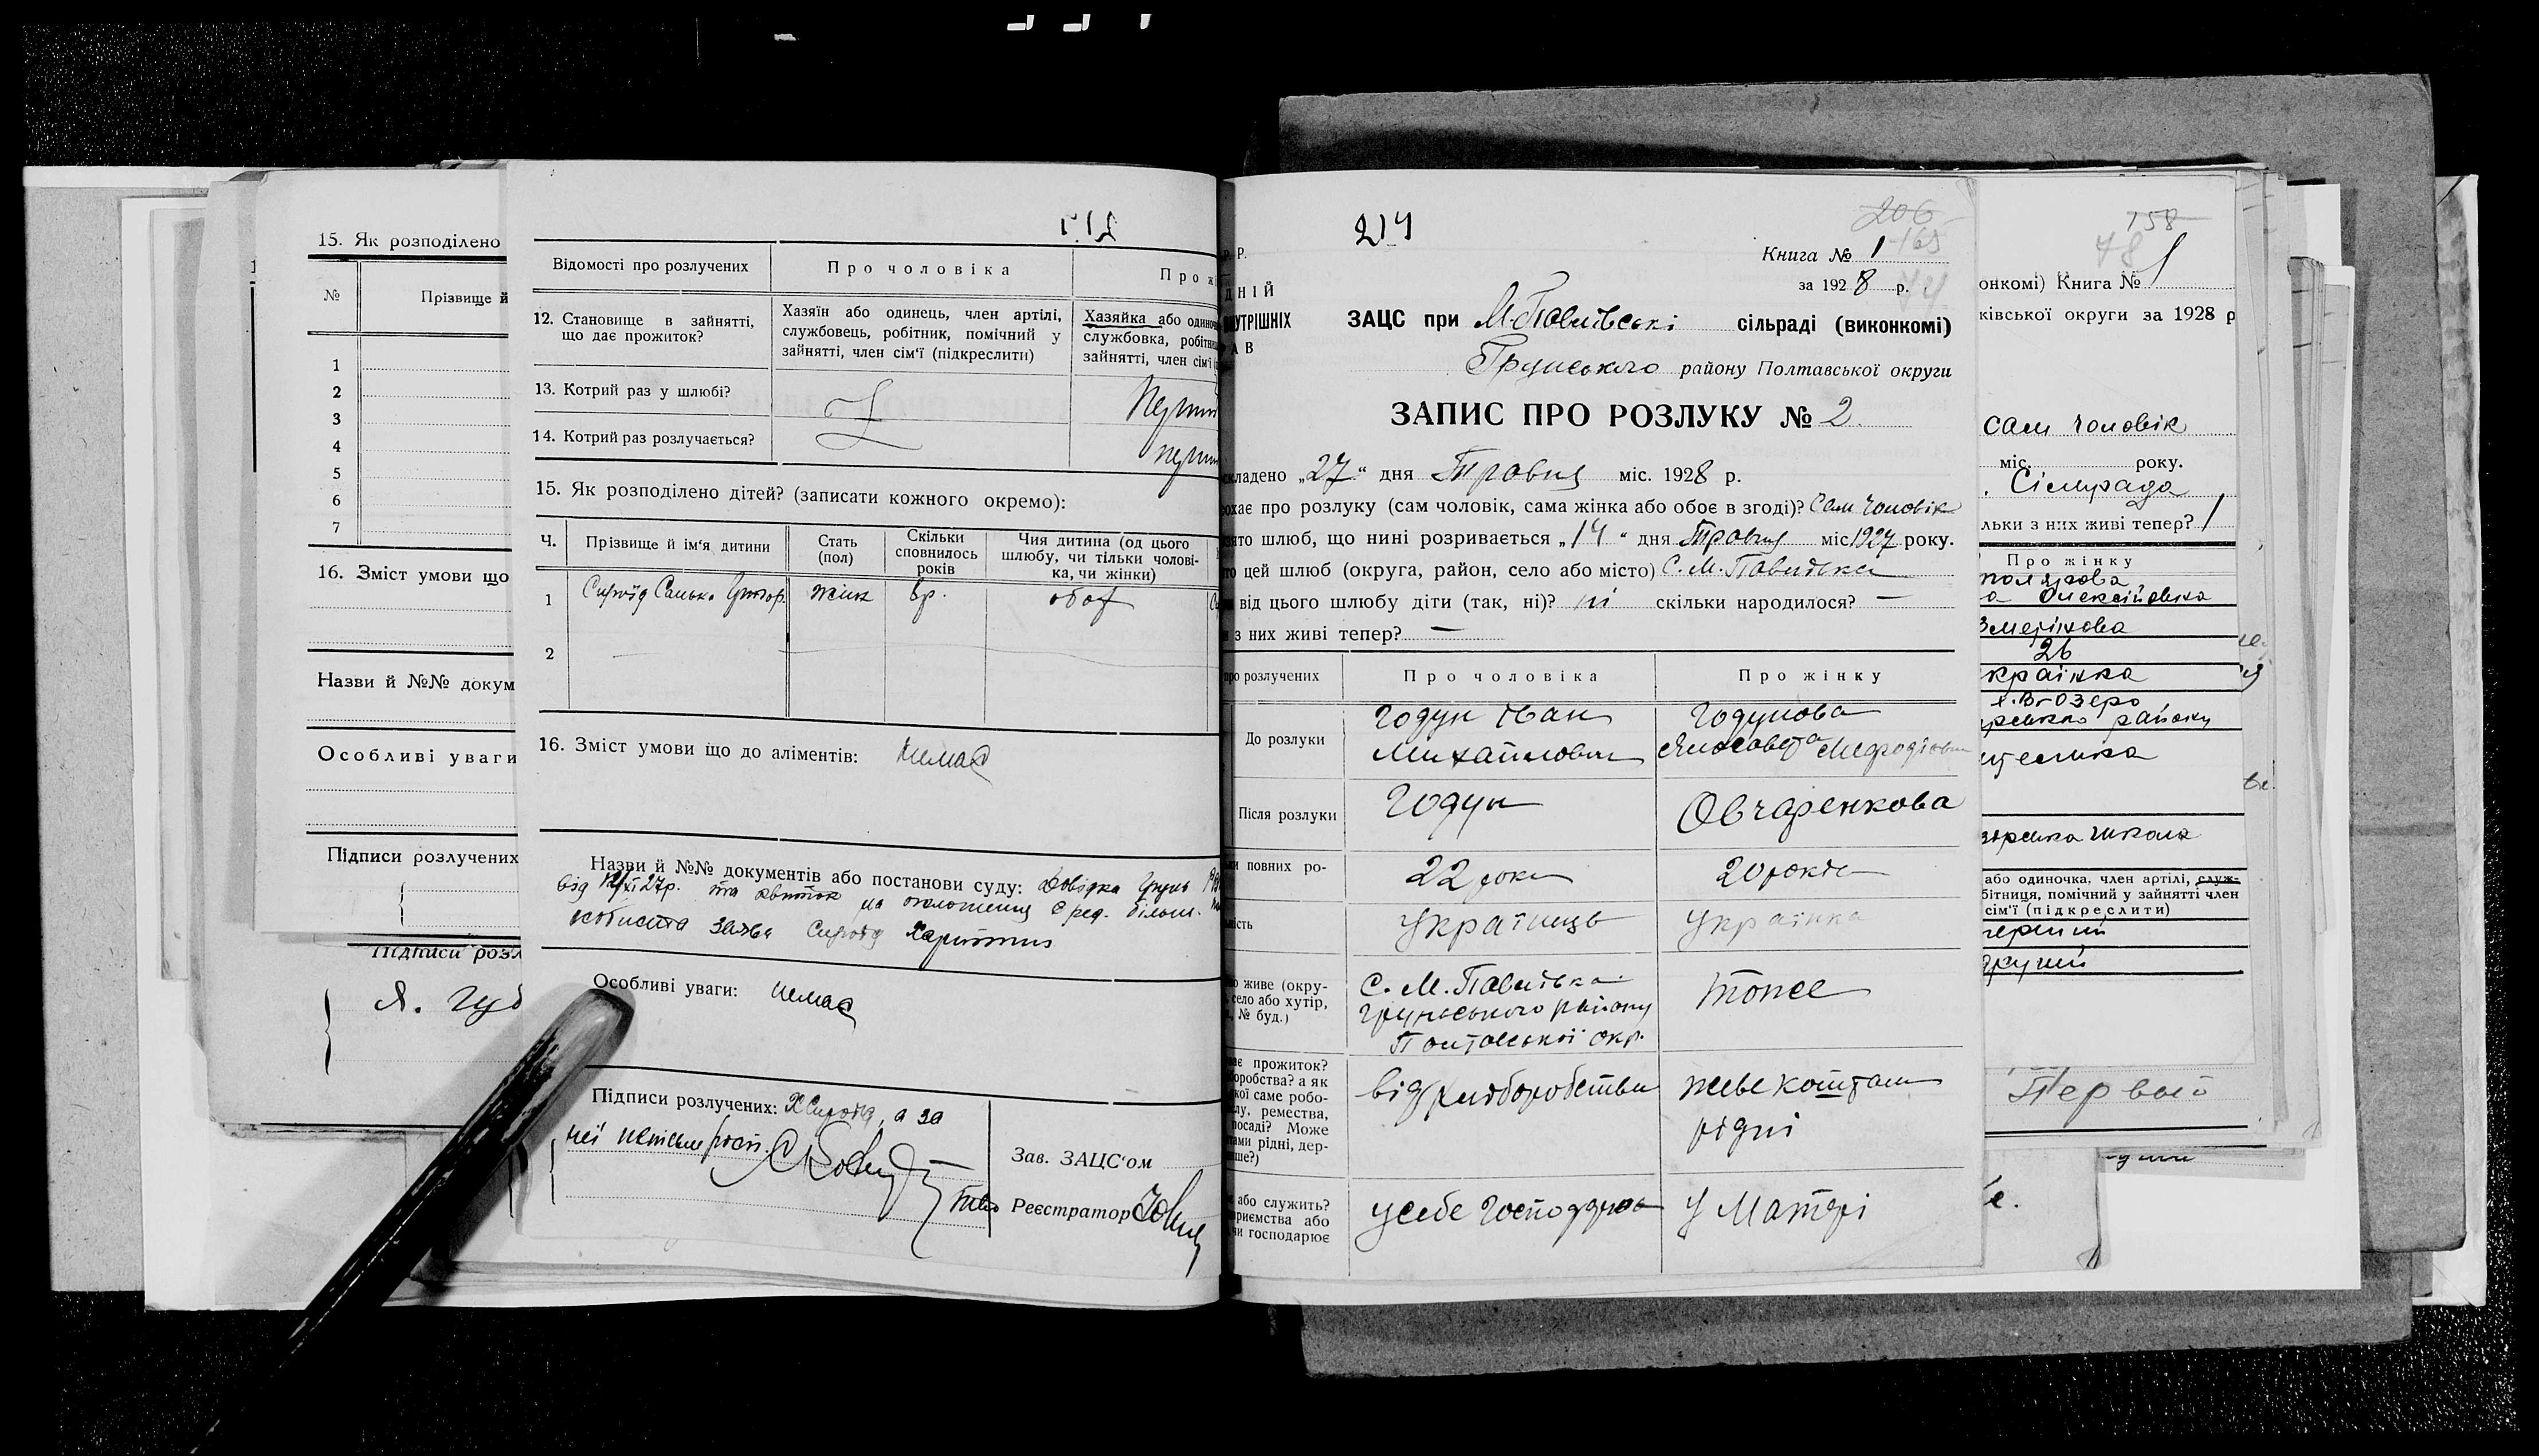 15. Як розподілено
№
Прізвище й
1
2
3
4
5
6
7
16. Зміст умови що
Назви й №№ докум
Особливі уваги
Підписи розлучених
Підписи розл
Я.
Відомості про розлучених
Про чоловіка
12. Становище в зайнятті,
що дає прожиток?
Хазяїн або одинець, член артілі,
службовець, робітник, помічний у
зайнятті, член сім'ї (підкреслити)
Хазяйка або одиноч
службовка, робітни
зайнятті, член сім'ї
13. Котрий раз у шлюбі?
14. Котрий раз розлучається?
15. Як розподілено дітей? (записати кожного окремо):
Ч.
Прізвище й ім'я дитини
Стать
(пол)
Скільки
сповнилось
років
Чия дитина (од цього
шлюбу, чи тільки чолові-
ка, чи жінки)
1
жінк
обох
2
16. Зміст умови що до аліментів: немає
Назви й №№ документів або постанови суду: Довідка
від 27р. та квиток на оголошення
заява Харитини
Особливі уваги: немає
Підписи розлучених: а за
неї неписьмен.
Зав. ЗАЦС'ом
Реєстратор
214
206
165
Р.
Книга № 1
за 1928 р.
ДНІЙ
УТРІШНІХ
АВ
ЗАЦС при М-Павлівські сільраді (виконкомі)
Грунського району Полтавської округи
ЗАПИС ПРО РОЗЛУКУ № 2
кладено „27" дня Травня міс. 1928 р.
охає про розлуку (сам чоловік, сама жінка або обоє в згоді)? Сам чоловік
ято шлюб, що нині розривається „14" дня Травня міс 1927 року.
то цей шлюб (округа, район, село або місто) С. М. Павлівка
від цього шлюбу діти (так, ні)? ні скільки народилося? —
з них живі тепер? —
про розлучених
Про чоловіка
Про жінку
До розлуки
Годун Іван
Михайлович
Годунова
Єлисавета Мефодіївн
Після розлуки
Годун
Овчаренкова
ки повних ро-
22 роки
20 років
ість
Українець
Українка
о живе (окру-
село або хутір,
№ буд.)
С. М. Павлівка
Грунського району
Полтавської окр.
тоже
ає прожиток?
оробства? а як
кої саме робо-
лу, ремества,
посаді? Може
тами рідні, дер-
ше?)
від хліборобства
живе коштам
рідні
або служить?
приємства або
чи господарює
у себе господарює
у Матері
158
78
онкомі) Книга № 1
ківської округи за 1928 р
сам чоловік
міс. року.
Сільрада
льки з них живі тепер? 1
Про жінку
Олексіївна
26
країнка
х. В-Озеро
району
школа
або одиночка, член артілі, служ-
бітниця, помічний у зайнятті член
сім'ї (підкреслити)
перший
другий
Первой